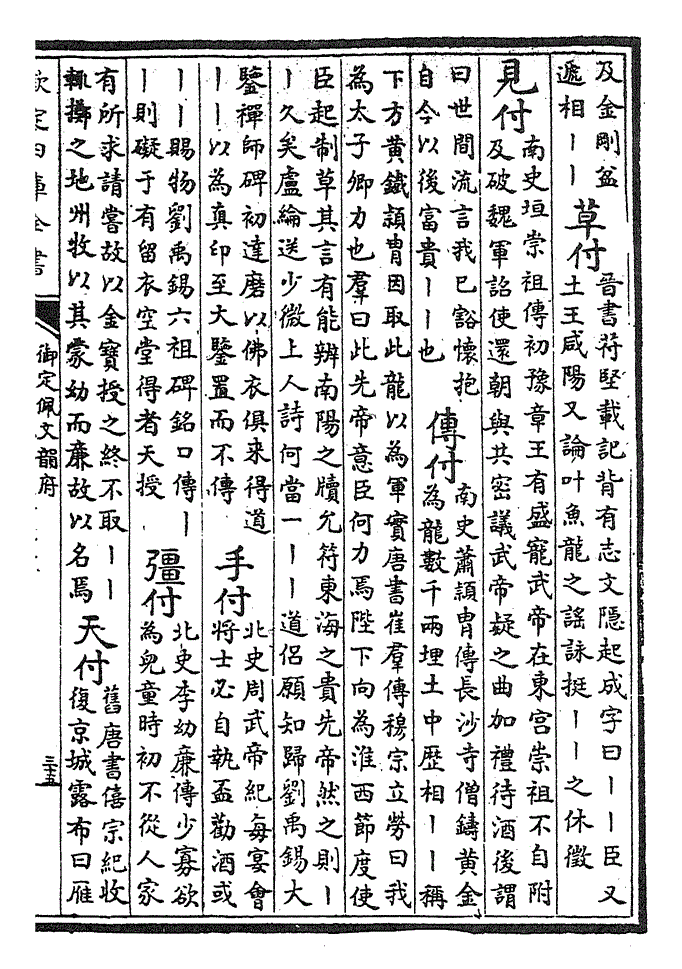 及金剛盆
遞相丨丨
草付
晉書苻堅載記背有志文隠起成字曰丨丨臣又
土王咸陽又論叶魚龍之謠詠挺丨丨之休徵
見付
南史垣崇祖傳初豫章王有盛寵武帝在東宮崇祖不自附
及破魏軍詔使還朝與共密議武帝疑之曲加禮待酒後謂
曰世間流言我已豁懷抱
自今以後富貴丨丨也
傳付
南史蕭頴胄傳長沙寺僧鑄黄金
為龍數千兩埋土中歴相丨丨稱
下方黄鐵頴胄因取此龍以為軍實唐書崔羣傳穆宗立勞曰我
為太子卿力也羣曰此先帝意臣何力焉陛下向為淮西節度使
臣起制草其言有能辨南陽之牘允符東海之貴先帝然之則丨
丨久矣盧綸送少微上人詩何當一丨丨道侶願知歸劉禹錫大
鑒禪師碑初達磨以佛衣俱来得道
丨丨以為真印至大鑒置而不傳
手付
北史周武帝紀每宴會
將士必自執盃勸酒或
丨丨賜物劉禹錫六祖碑銘口傳丨
丨則礙于有留衣空堂得者天授
彊付
北史李幼廉傳少寡欲
為兒童時初不從人家
有所求請嘗故以金寶授之終不取丨丨
輒擲之地州牧以其蒙幼而廉故以名焉
天付
舊唐書僖宗紀收
復京城露布曰雁
欽定四庫全書
御定佩文韻府
三十五